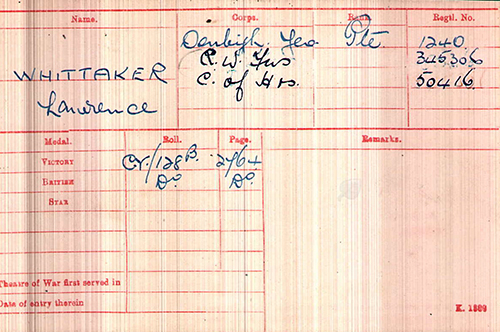 Name. Corps. Rank. Regtl. No.
Denbigh. Yeo Pte 1240
WHITTAKER R. W. Fus 345306
Lawrence C. of Hrs. 50416
Medal. Roll. Page. Remarks.
VICTORY CY/128B. 2764
BRITISH Do. Do.
STAR
Theatre of War first served in
Date of entry therein
K. 1389